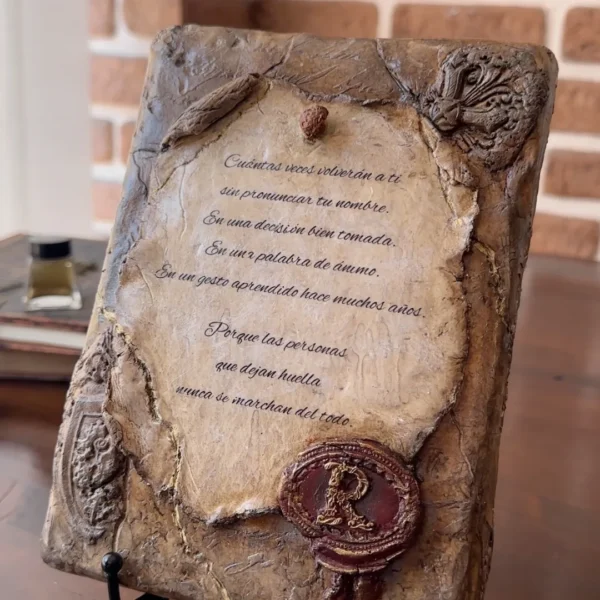 Cuántas veces volverán a ti
sin pronunciar tu nombre.
En una decisión bien tomada.
En una palabra de ánimo.
En un gesto aprendido hace muchos años.
Porque las personas
que dejan huella
nunca se marchan del todo.
R